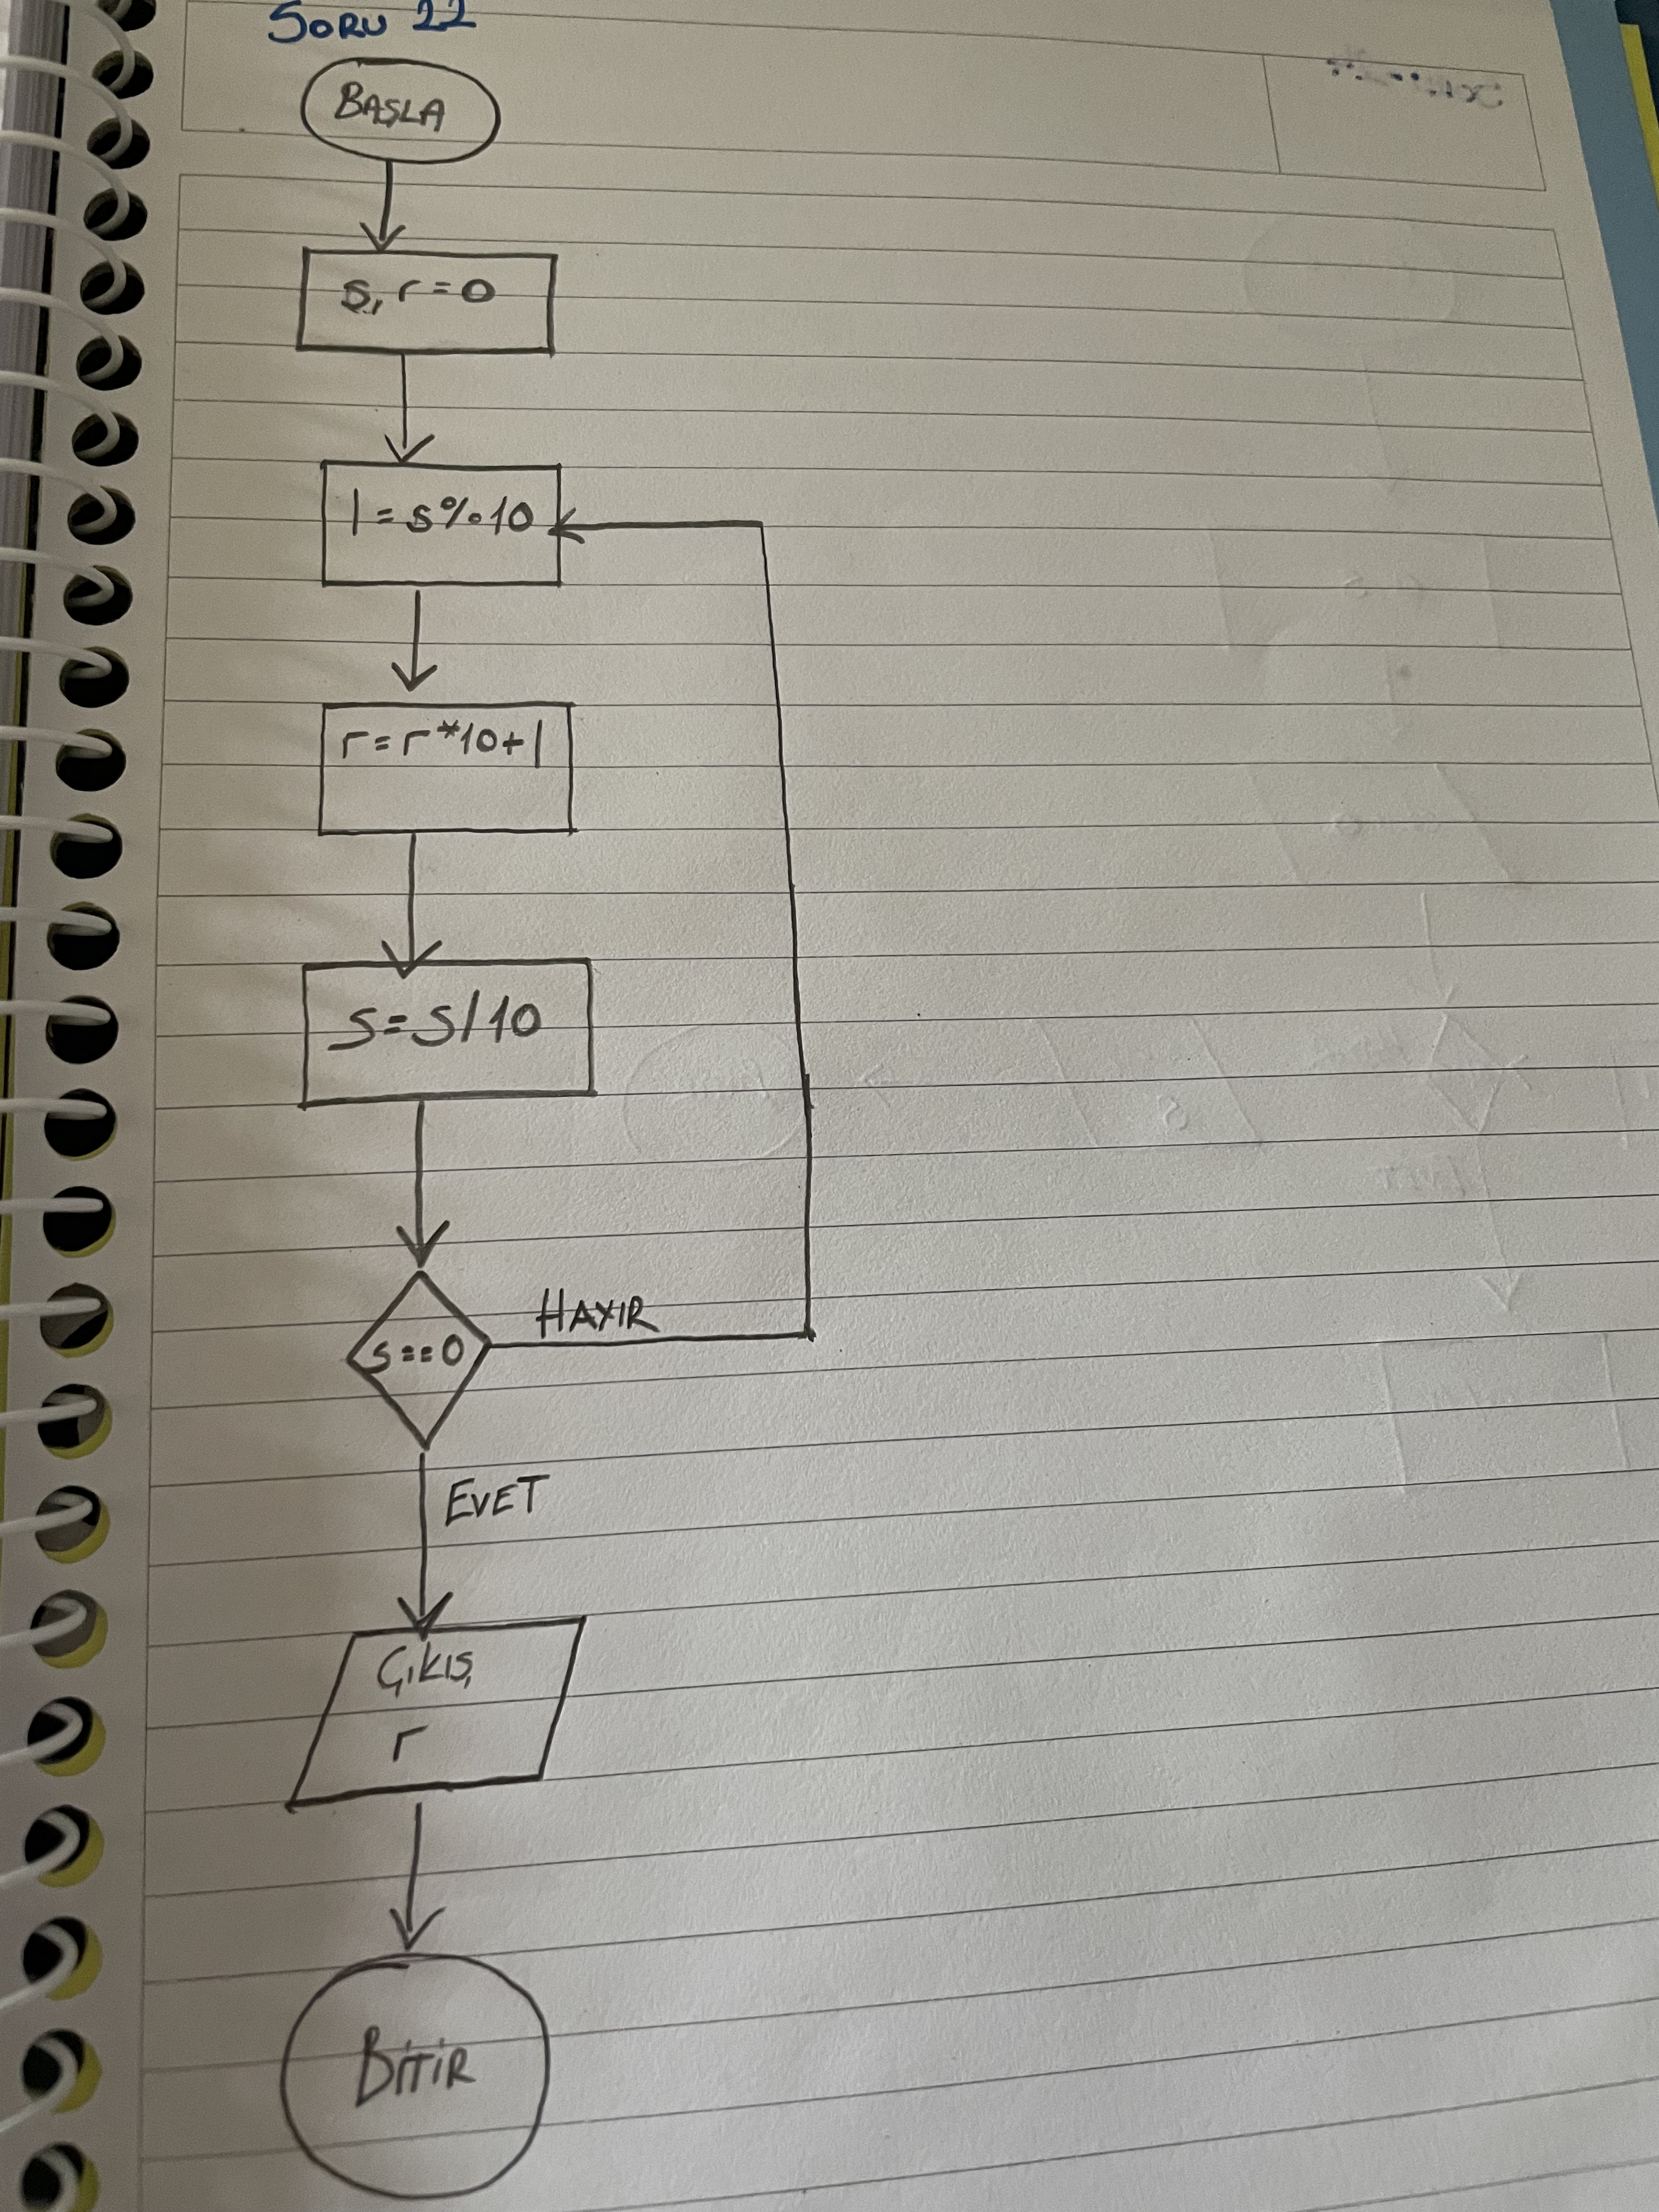 SORU 22
BAŞLA
s, r=0
l=s%10
r=r*10+l
s=s/10
s==0
HAYIR
EVET
Çıkış
r
BİTİR